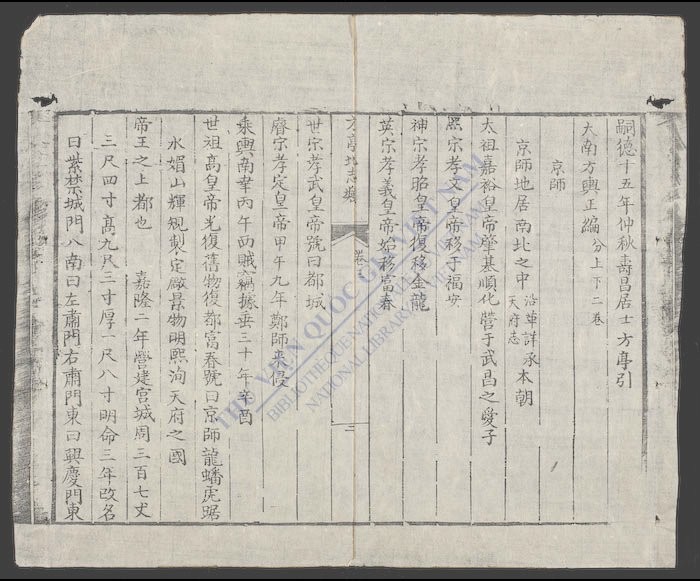 嗣德十五年仲秋壽昌居士方亭引
大南方輿正編 分上下二卷
京師
京師地居南北之中 沿革詳承本朝天府志
太祖嘉裕皇帝肇基順化營于武昌之愛子
熙宗孝文皇帝移于福安
神宗孝昭皇帝復移金龍
英宗孝義皇帝始移富春
方亭地志類 卷一 三
世宗孝武皇帝號曰都城
睿宗孝定皇帝甲午九年鄭師來侵
乘輿南幸丙午西賊竊據垂三十年辛酉
世祖高皇帝光復舊物復都富春號曰京師龍蟠虎踞
水媚山輝規製定厥景物明熙洵天府之國
帝王之上都也 嘉隆二年營建宮城周三百七丈
三尺四寸高九尺三寸厚一尺八寸明命三年改名
曰紫禁城門八南曰左肅門右肅門東曰興慶門東
THƯ VIỆN QUỐC GIA VIỆT NAM
BIBLIOTHEQUE NATIONALE DU VIETNAM
NATIONAL LIBRARY OF VIETNAM